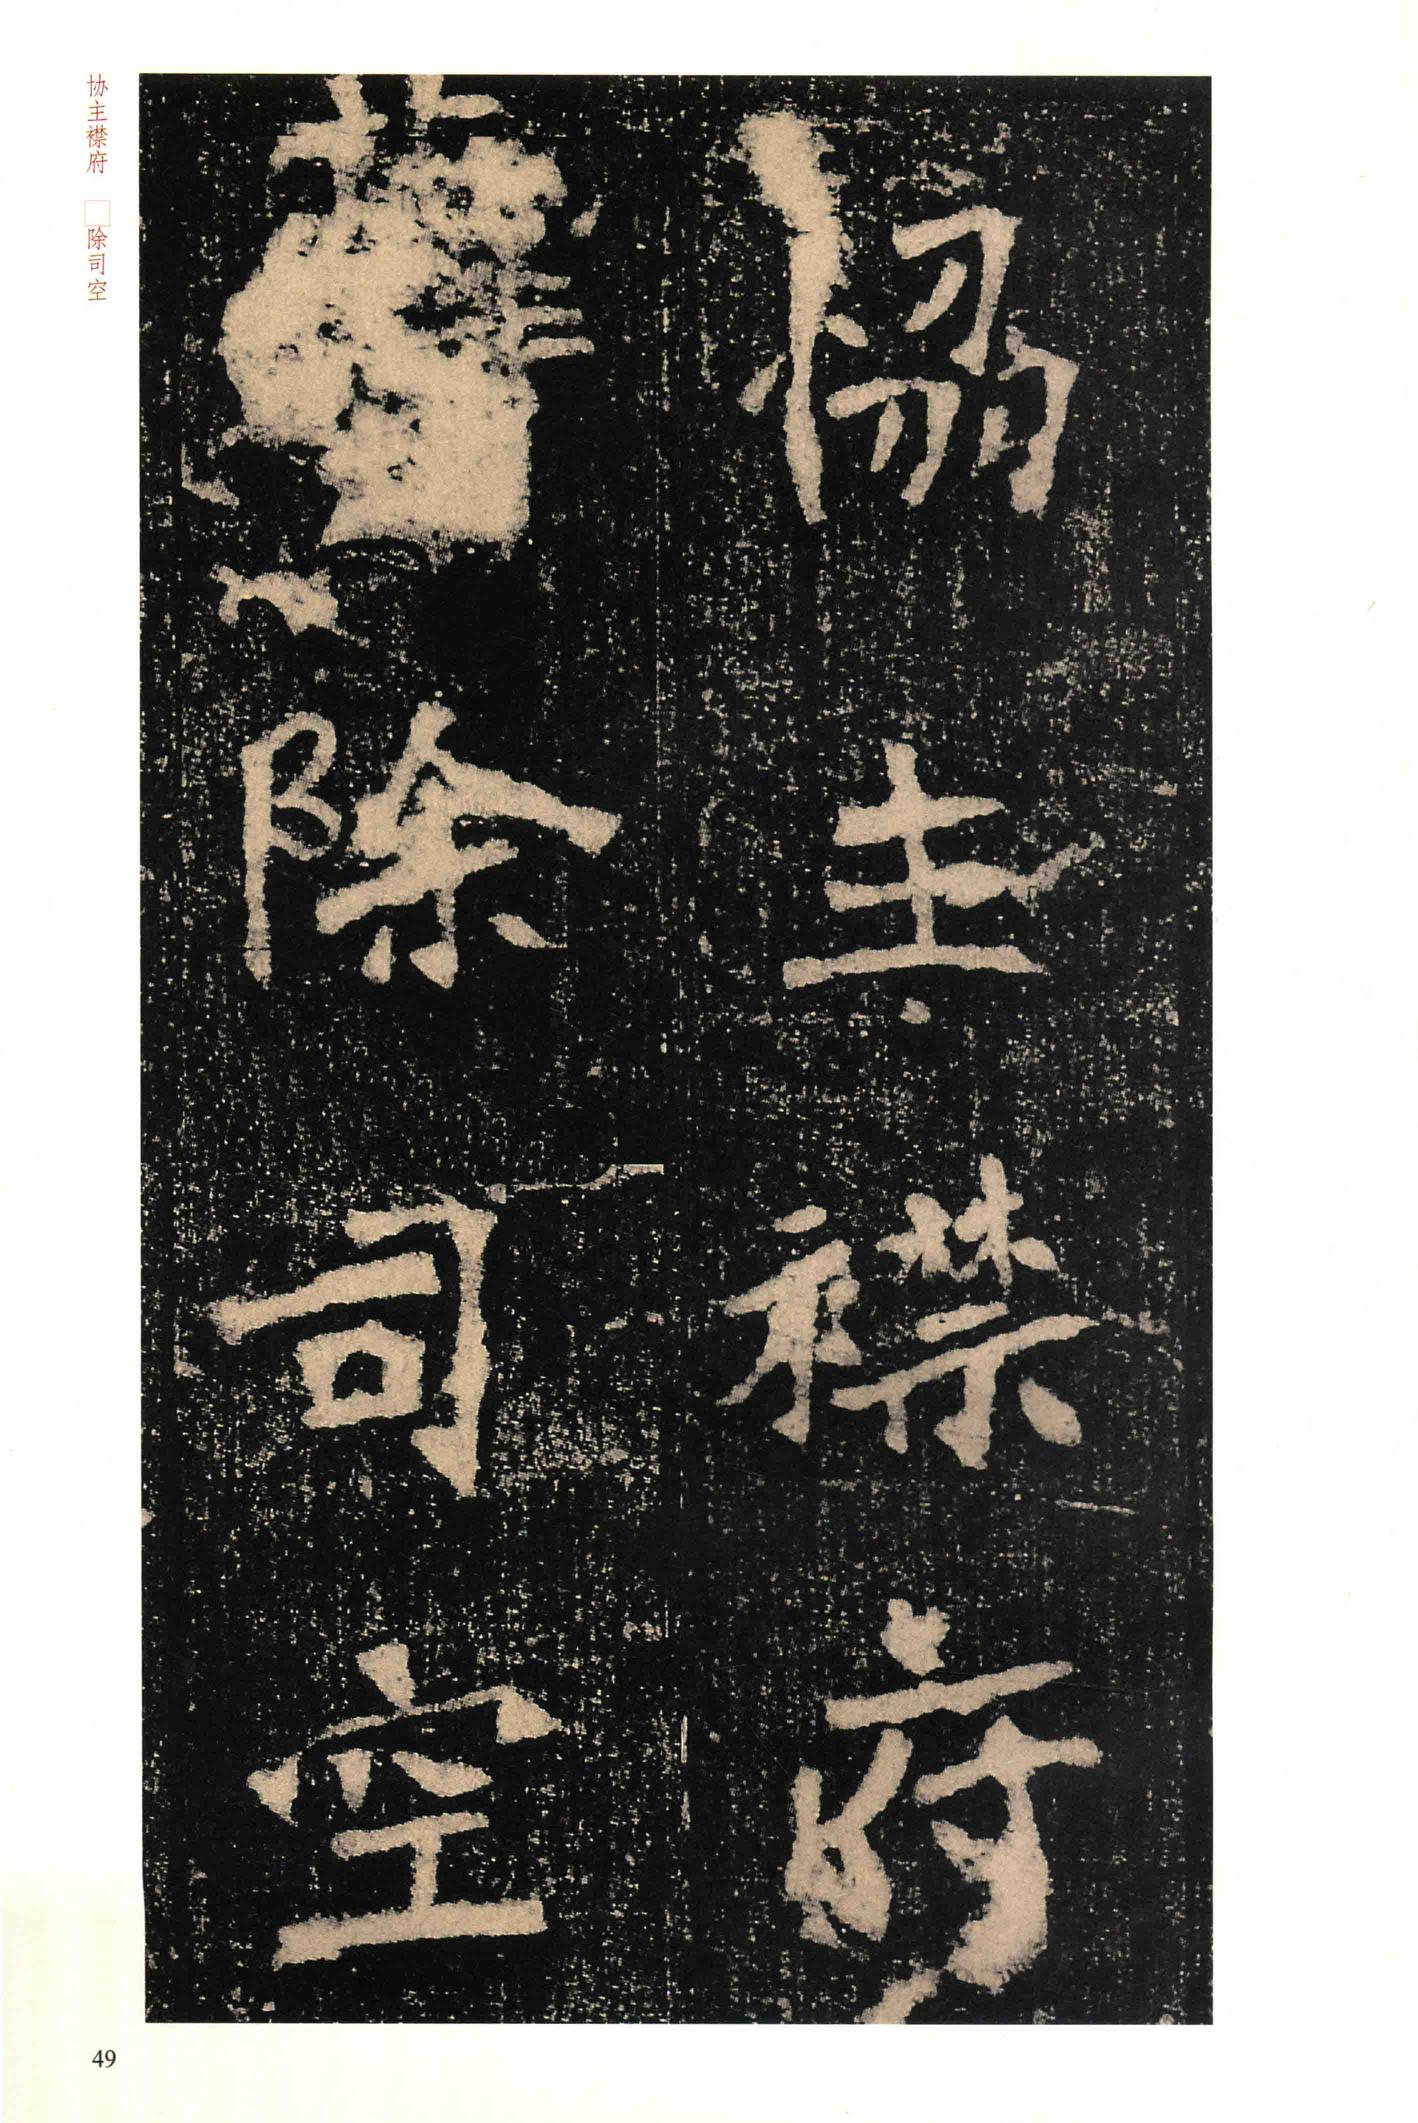 协主襟府 □除司空
恊主襟府
除司空
49